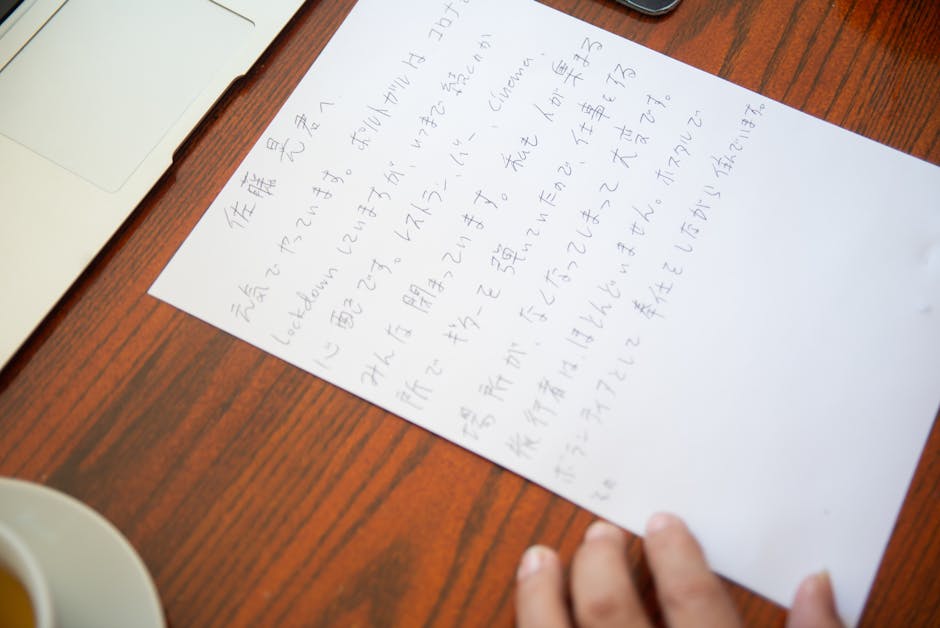 佐藤 君へ
元気で やっています。 ポルトガルは コロナ
Lockdown していますが、いつまで 続くのか
心配です。レストラン、バー、Cinema、
みんな 閉まっています。 私も 人が 集まる
所で ギターを 弾いていたので、仕事をする
場所が、なくなってしまって 大変です。
旅行者は、ほとんどいません。ホステルで
ボランティアとして 奉仕を しながら 住んでいます。